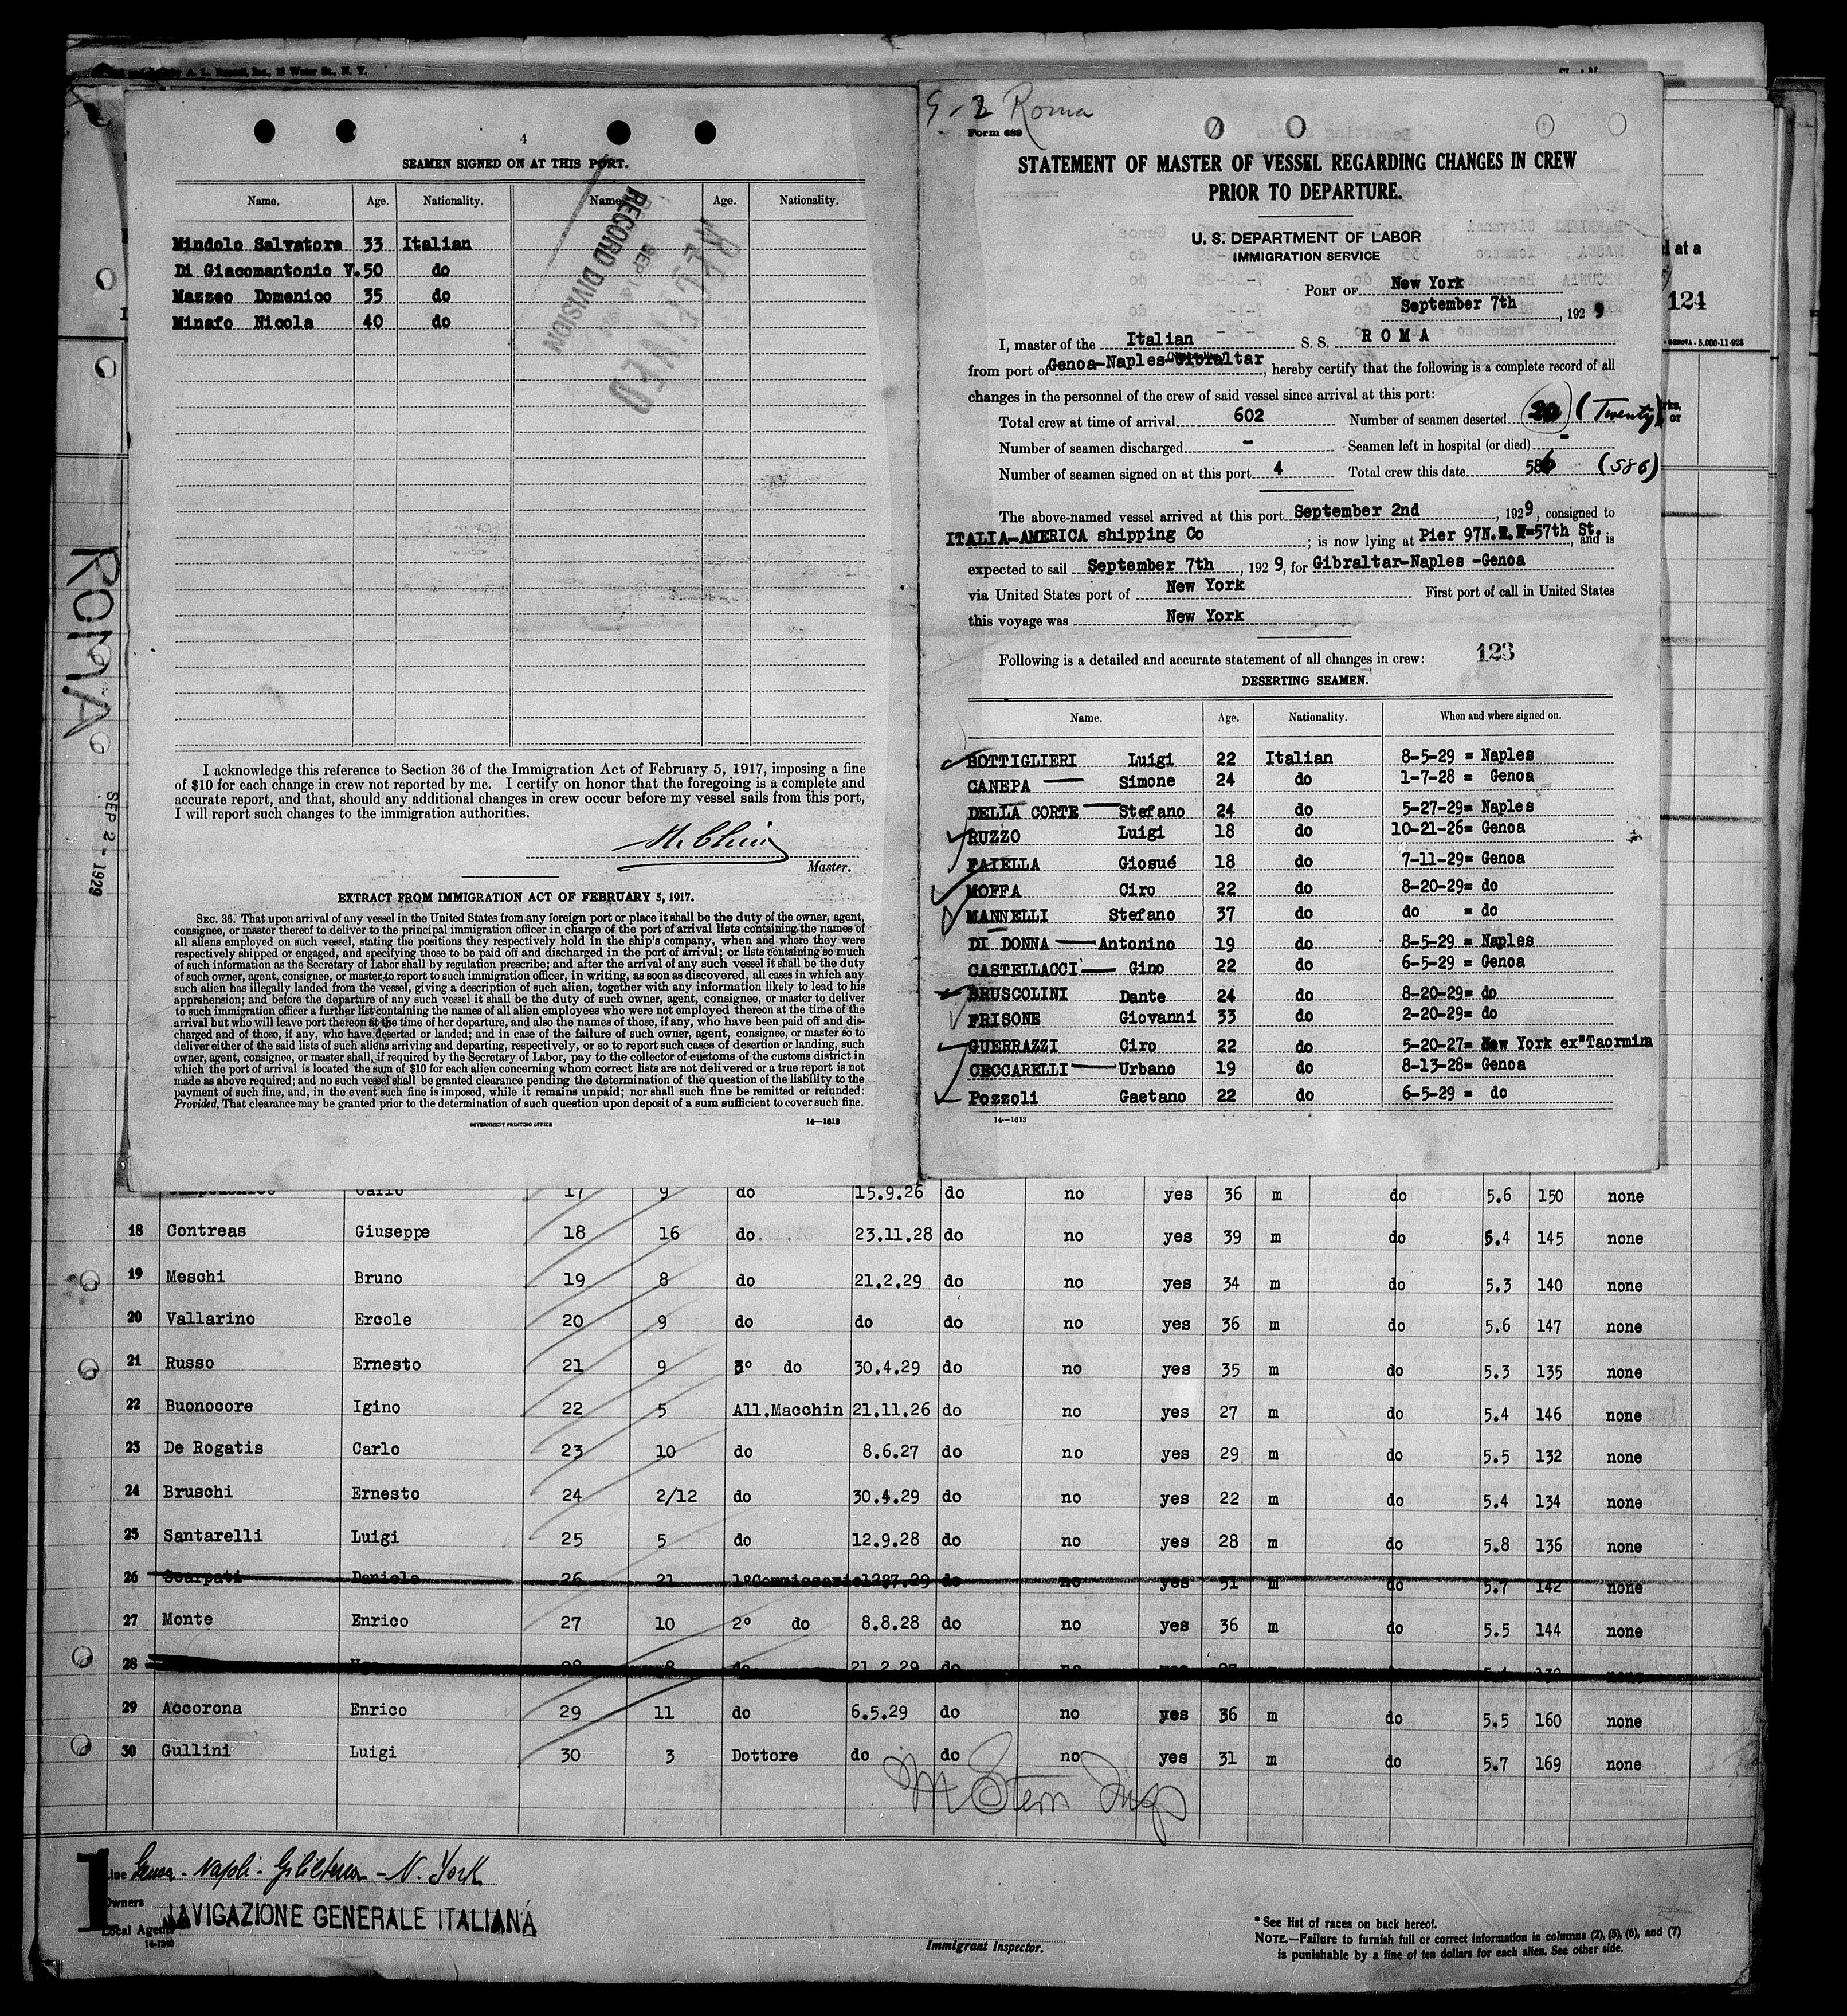 A. L. Russell, Inc., 15 Water St., N. Y.
4
SEAMEN SIGNED ON AT THIS PORT.
Name. Age. Nationality. Name. Age. Nationality.
Mindolo Salvatore 33 Italian
Di Giacomantonio V. 50 do
Mazzeo Domenico 35 do
Minafo Nicola 40 do
RECORD DIVISION
SEP 14
RECEIVED
I acknowledge this reference to Section 36 of the Immigration Act of February 5, 1917, imposing a fine
of $10 for each change in crew not reported by me. I certify on honor that the foregoing is a complete and
accurate report, and that, should any additional changes in crew occur before my vessel sails from this port,
I will report such changes to the immigration authorities.
Master.
EXTRACT FROM IMMIGRATION ACT OF FEBRUARY 5, 1917.
SEC. 36. That upon arrival of any vessel in the United States from any foreign port or place it shall be the duty of the owner, agent,
consignee, or master thereof to deliver to the principal immigration officer in charge of the port of arrival lists containing the names of
all aliens employed on such vessel, stating the positions they respectively hold in the ship's company, when and where they were
respectively shipped or engaged, and specifying those to be paid off and discharged in the port of arrival; or lists containing so much
of such information as the Secretary of Labor shall by regulation prescribe; and after the arrival of any such vessel it shall be the duty
of such owner, agent, consignee, or master to report to such immigration officer, in writing, as soon as discovered, all cases in which any
such alien has illegally landed from the vessel, giving a description of such alien, together with any information likely to lead to his
apprehension; and before the departure of any such vessel it shall be the duty of such owner, agent, consignee, or master to deliver
to such immigration officer a further list containing the names of all alien employees who were not employed thereon at the time of the
arrival but who will leave port thereon at the time of her departure, and also the names of those, if any, who have been paid off and dis-
charged and of those, if any, who have deserted or landed; and in case of the failure of such owner, agent, consignee, or master so to
deliver either of the said lists of such aliens arriving and departing, respectively, or so to report such cases of desertion or landing, such
owner, agent, consignee, or master shall, if required by the Secretary of Labor, pay to the collector of customs of the customs district in
which the port of arrival is located the sum of $10 for each alien concerning whom correct lists are not delivered or a true report is not
made as above required; and no such vessel shall be granted clearance pending the determination of the question of the liability to the
payment of such fine, and, in the event such fine is imposed, while it remains unpaid; nor shall such fine be remitted or refunded:
Provided, That clearance may be granted prior to the determination of such question upon deposit of a sum sufficient to cover such fine.
GOVERNMENT PRINTING OFFICE 14—1613
ROMA
SEP 2 - 1929
Roma
Form 689
STATEMENT OF MASTER OF VESSEL REGARDING CHANGES IN CREW
PRIOR TO DEPARTURE.
U. S. DEPARTMENT OF LABOR
IMMIGRATION SERVICE
PORT OF New York
September 7th, 1929
I, master of the Italian S. S. ROMA
from port of Genoa-Naples-Gibraltar, hereby certify that the following is a complete record of all
changes in the personnel of the crew of said vessel since arrival at this port:
Total crew at time of arrival 602 Number of seamen deserted 20 (Twenty)
Number of seamen discharged - Seamen left in hospital (or died) -
Number of seamen signed on at this port 4 Total crew this date 586 (586)
The above-named vessel arrived at this port September 2nd, 1929, consigned to
ITALIA-AMERICA shipping Co; is now lying at Pier 97N.R.W=57th St., and is
expected to sail September 7th, 1929, for Gibraltar-Naples -Genoa
via United States port of New York First port of call in United States
this voyage was New York
Following is a detailed and accurate statement of all changes in crew: 123
DESERTING SEAMEN.
Name. Age. Nationality. When and where signed on.
BOTTIGLIERI Luigi 22 Italian 8-5-29 = Naples
CANEPA Simone 24 do 1-7-28 = Genoa
DELLA CORTE Stefano 24 do 5-27-29= Naples
RUZZO Luigi 18 do 10-21-26= Genoa
FAIELLA Giosué 18 do 7-11-29= Genoa
MOFFA Ciro 22 do 8-20-29= do
MANNELLI Stefano 37 do do = do
DI DONNA Antonino 19 do 8-5-29 = Naples
CASTELLACCI Gino 22 do 6-5-29 = Genoa
BRUSCOLINI Dante 24 do 8-20-29= do
FRISONE Giovanni 33 do 2-20-29= do
GUERRAZZI Ciro 22 do 5-20-27= New York ex"Taormina
CECCARELLI Urbano 19 do 8-13-28= Genoa
Pozzoli Gaetano 22 do 6-5-29 = do
14—1613
d at a
124
GENOVA - 5,000-11-928
rks,
or
Carlo 17 9 do 15.9.26 do no yes 36 m do 5.6 150 none
18 Contreas Giuseppe 18 16 do 23.11.28 do no yes 39 m do 5.4 145 none
19 Meschi Bruno 19 8 do 21.2.29 do no yes 34 m do 5.3 140 none
20 Vallarino Ercole 20 9 do do do no yes 36 m do 5.6 147 none
21 Russo Ernesto 21 9 3° do 30.4.29 do no yes 35 m do 5.3 135 none
22 Buonocore Igino 22 5 All.Macchin 21.11.26 do no yes 27 m do 5.4 146 none
23 De Rogatis Carlo 23 10 do 8.6.27 do no yes 29 m do 5.5 132 none
24 Bruschi Ernesto 24 2/12 do 30.4.29 do no yes 22 m do 5.4 134 none
25 Santarelli Luigi 25 5 do 12.9.28 do no yes 28 m do 5.8 136 none
26 Scarpati Daniele 26 21 1°Commissario 1287.29 do no yes 51 m do 5.7 142 none
27 Monte Enrico 27 10 2° do 8.8.28 do no yes 36 m do 5.5 144 none
28 Ugo 28 8 do 21.2.29 do no
29 Accorona Enrico 29 11 do 6.5.29 do no yes 36 m do 5.5 160 none
30 Gullini Luigi 30 3 Dottore do do no yes 31 m do 5.7 169 none
M Stern Insp
1
Line Genoa - Napoli - Gibilterra - N. York
Owners
NAVIGAZIONE GENERALE ITALIANA
Local Agents
14-1240
Immigrant Inspector.
* See list of races on back hereof.
NOTE.—Failure to furnish full or correct information in columns (2), (5), (6), and (7)
is punishable by a fine of ten dollars for each alien. See other side.